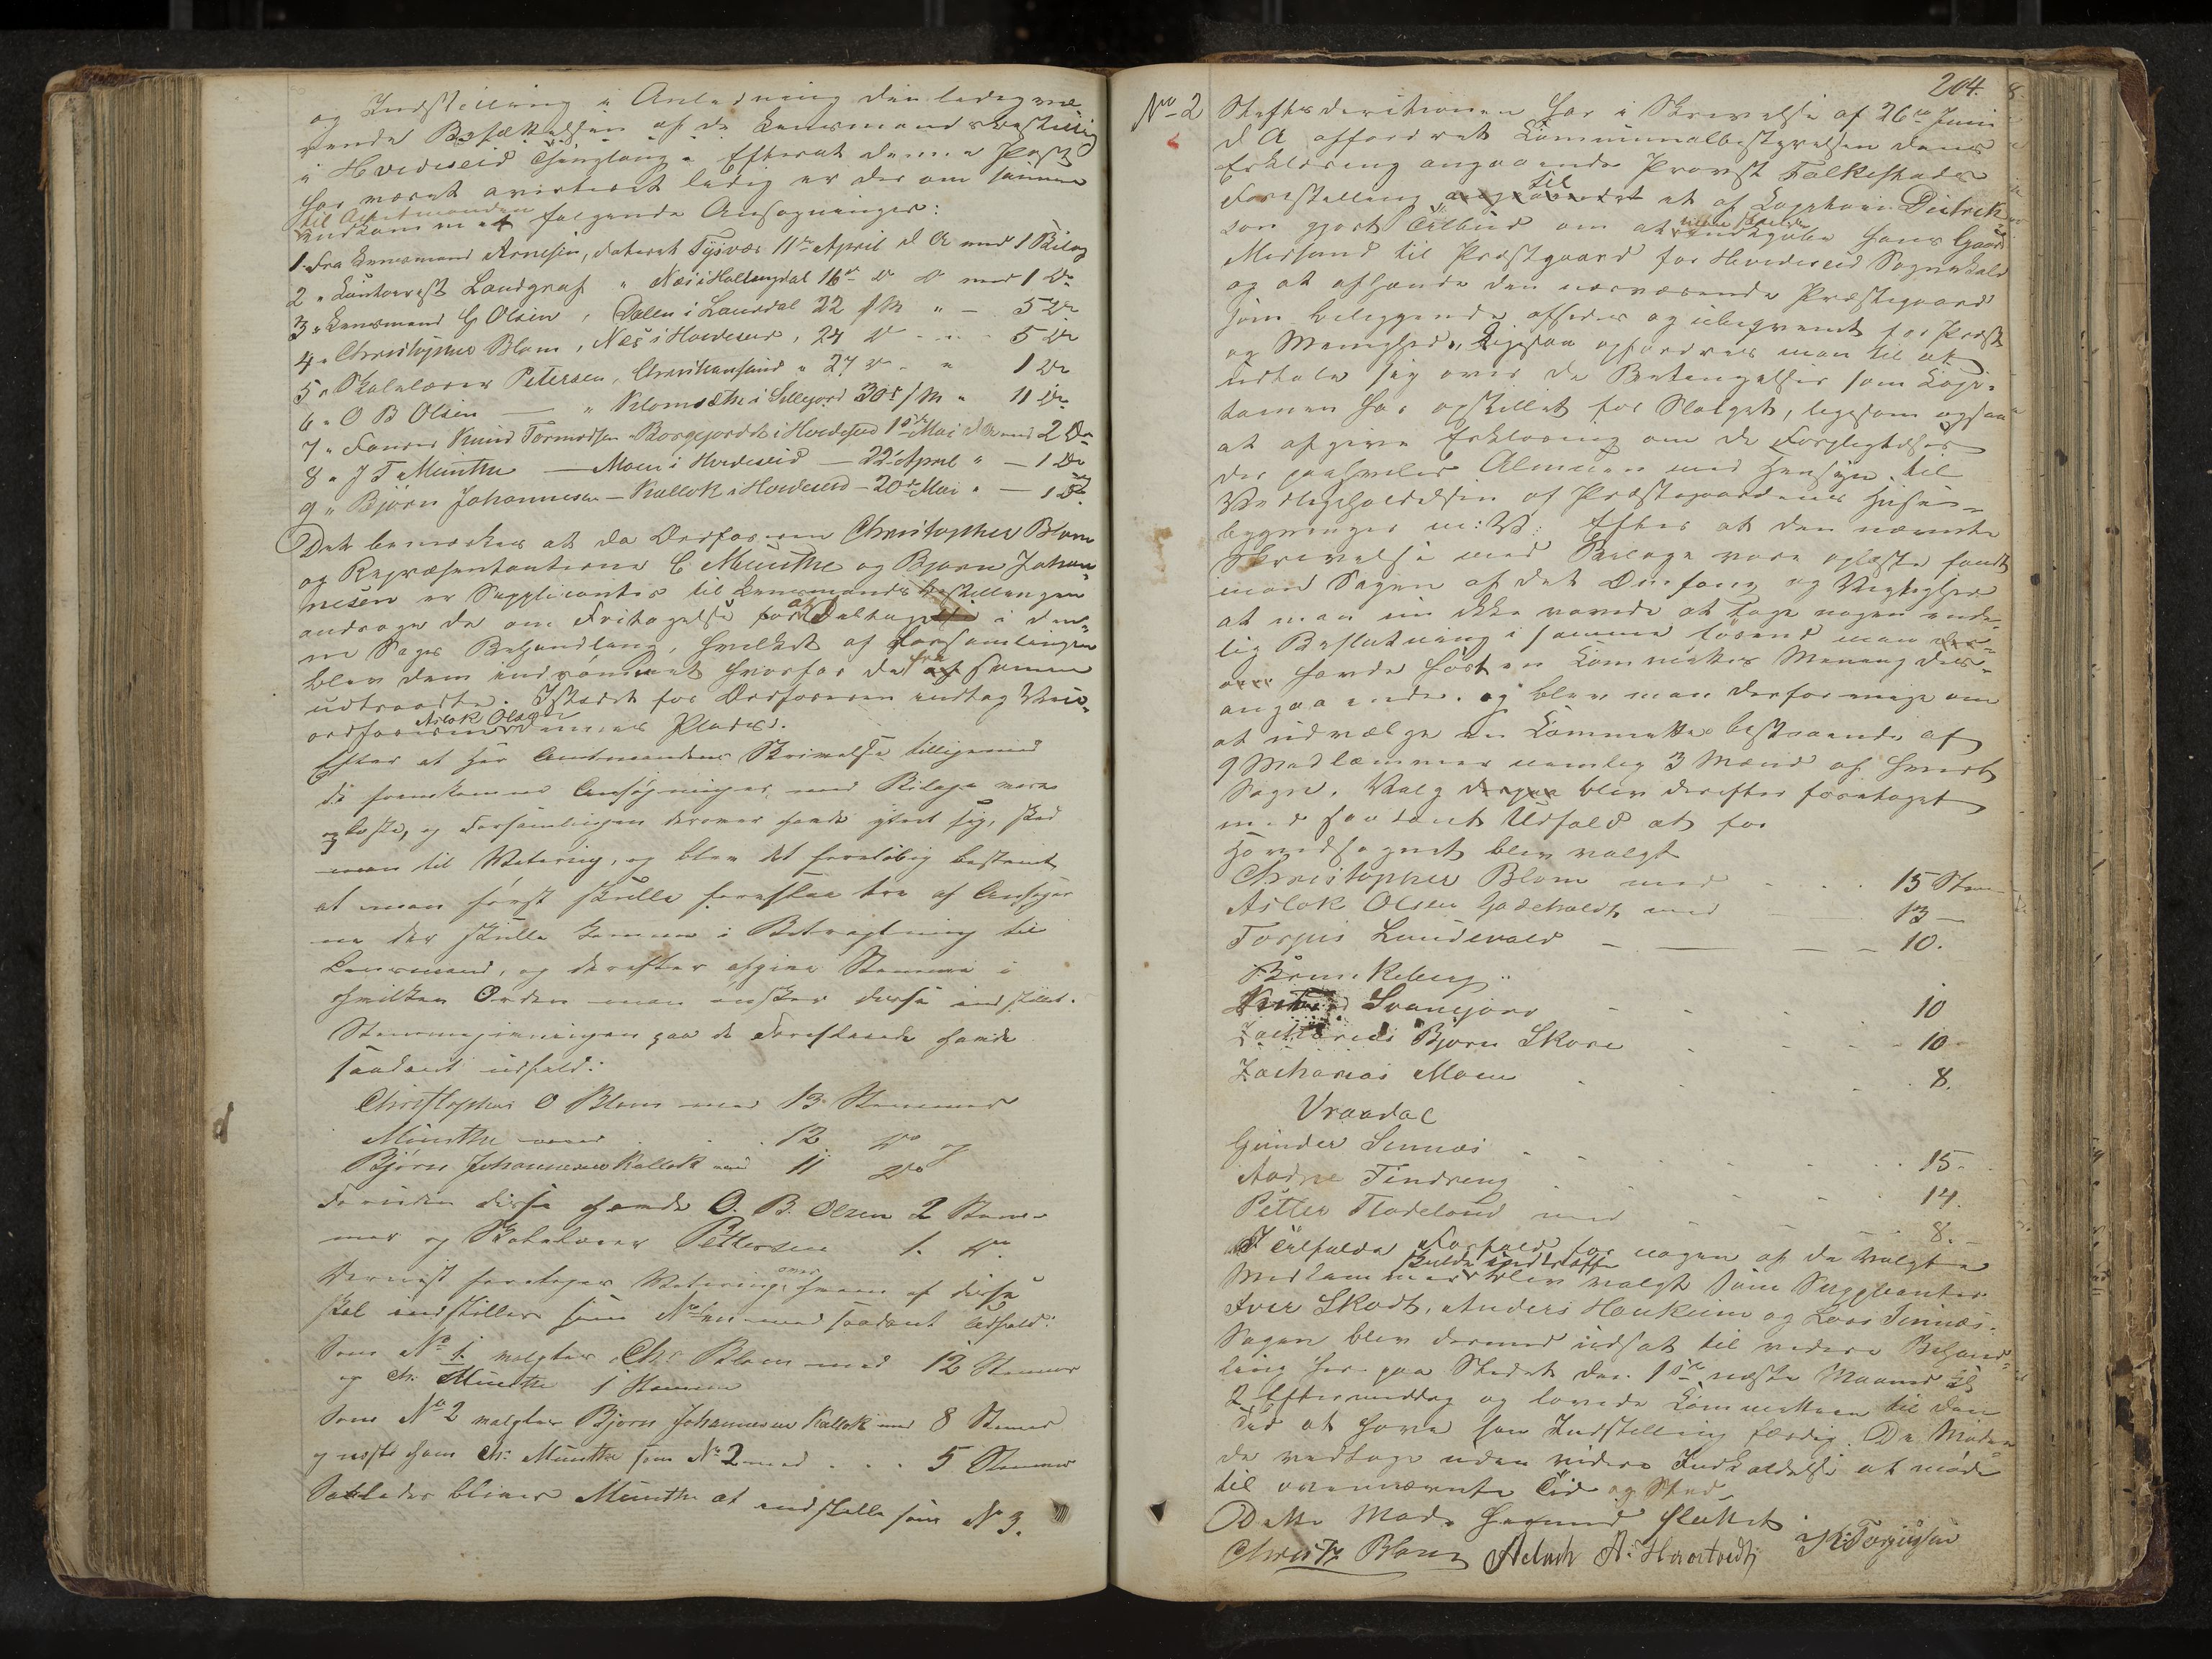 og Indstilling i Anledning den ledig væ-
rende Besættelsen af de Lensmandsbestilling
i Hvideseid Thinglaug. Efterat denne Post
har været averteret ledig er der om samme
til Amtmanden
indkommet følgende Ansøgninger:
1. Fra Lensmand Arnesen, dateret Tysvær 11te April d A med 1 Bilag
2 " Kontorist Landgraf " Næs i Hallingdal 16de do do med 1 Do
3 " Lensmand G Olsen, Dalen i Laurdal 22 f M " — 5 Do
4 " Christopher Blom, Næs i Hvideseid, 24 do " 5 Do
5 " Skolelærer Petersen, Christiansand " 27 do " 1 Do
6 " O B Olsen — " i Sillejord 30te f M " 11 Do
7 " Knud Tormodsen Borgejordet i Hvideseid 1ste Mai d A med 2 Do
8 " J T Munthe — Moen i Hvideseid — 22 April " — 1 Do
9 " Bjørn Johannesen — Kallok i Hvideseid — 20de Mai " — 1 Do
Det bemærkes at da Ordføreren Christopher Blom
og Repræsentanterne C Munthe og Bjørn Johan-
nesen er Supplicanter til Lensmandsbestillingen
androge de om Fritagelse for at Deltage i den-
ne Sags Behandling, hvilket af Forsamlingen
blev dem indrømmet hvorfor de fra samme
udtraadte. Istedet for Ordføreren indtog Vice-
Aslak Olsen
ordføreren dennes Plads.
Efter at Hr Amtmandens Skrivelse tilligemed
de fremkomne Ansøgninger med Bilage vare
oplæste, og Forsamlingen derover havde ytret sig, skred
man til Votering, og blev det foreløbig bestemt
at man først skulle foreslaa tre af Ansøger
ne der skulle komme i Betragtning til
Lensmand, og derefter afgive Stemme i
hvilken Orden man ønsker disse indstillet.
Stemmegivningen paa de Foreslaaede havde
saadant udfald:
Christopher O Blom med 13 Stemmer
Munthe med . . . 12 do og
Bjørn Johannesen Kallok med 11 do
Foruden disse havde O. B. Olsen 2 Stem-
mer og Skolelærer Pettersen 1. do
Dernæst foretoges Votering over hvem af disse
skal indstilles som No en med saadant Udfald:
Som No 1. valgtes Chr Blom med 12 Stemmer
og Ch. Munthe 1 Stemme
Som No 2 valgtes Bjørn Johannesen Kallok med 8 Stemmer
og næst ham Ch: Munthe som No 2 med . . . 5 Stemmer
Saaledes bliver Munthe at indstille som No 3.
204.
No 2
Stiftsdirektionen har i Skrivelse af 26de Juni
d A affordret Kommunalbestyrelsen dens
Erklæring angaaende Provst Falkestads
Forestilling til at af Kaptein Didrich-
son gjort Tilbud om at hans Gaard
til Præstgaard for Hvideseid Sognekald
og at afhænde den nærværende Præstegaard
som beliggende afsides og ubeqvemt for Præst
og Menighed. Ligesaa opfordres man til at
udtale sig over de Betingelser som Kap-
tainen har opstillet for Salget, ligesom ogsaa
at afgive Erklæring om de Forpligtelser
der paahviler Almuen med Hensyn til
Vedligeholdelsen af Præstegaardens Huse-
bygninger m: V: Efter at den nævnte
Skrivelse med Bilage vare oplæste fandt
man Sagen af det Omfang og Vigtighed
at man nu ikke vovede at tage nogen ende-
lig Beslutning i samme førend man
havde hørt en Kommittes Mening der-
angaaende. og blev man derfor enige om
at udvælge en Kommitte bestaaende af
9 Medlemmer nemlig 3 Mænd af hvert
Sogn. Valg blev derefter foretaget
med saadant Udfald at for
Hovedsognet blev valgt
Christopher Blom med . . . 15 Stem
Aslak Olsen med — 13 —
Torjus Lundevald — — — 10.
Brunkeberg
Svanejord - - - 10
Bjørn Skore - - - 10
Zacharias Moen . . . 8.
Vraadal
Gunder Sinnæs . . . 15.
Aadne Tindreng . . . 14.
Petter Fladeland med - - - 8. -
I Tilfælde Forfald for nogen af de valgte
skulde indtræffe
Medlemmer blev valgt som Suppleanter
Iver Skodt, Anders Haukum og Lars Sinnæs.
Sagen blev dermed udsat til videre Behand-
ling her paa Stedet den 1ste næste Maaned Kl
2 Eftermiddag og lovede Kommitteen til den
Tid at have sin Indstilling færdig. De Mødte
de vedtoge uden videre Indkaldelse at møde
til ovennævnte Tid og Sted.
Dette Møde hermed sluttet
Christ Blom Aslack A. K Torjussen